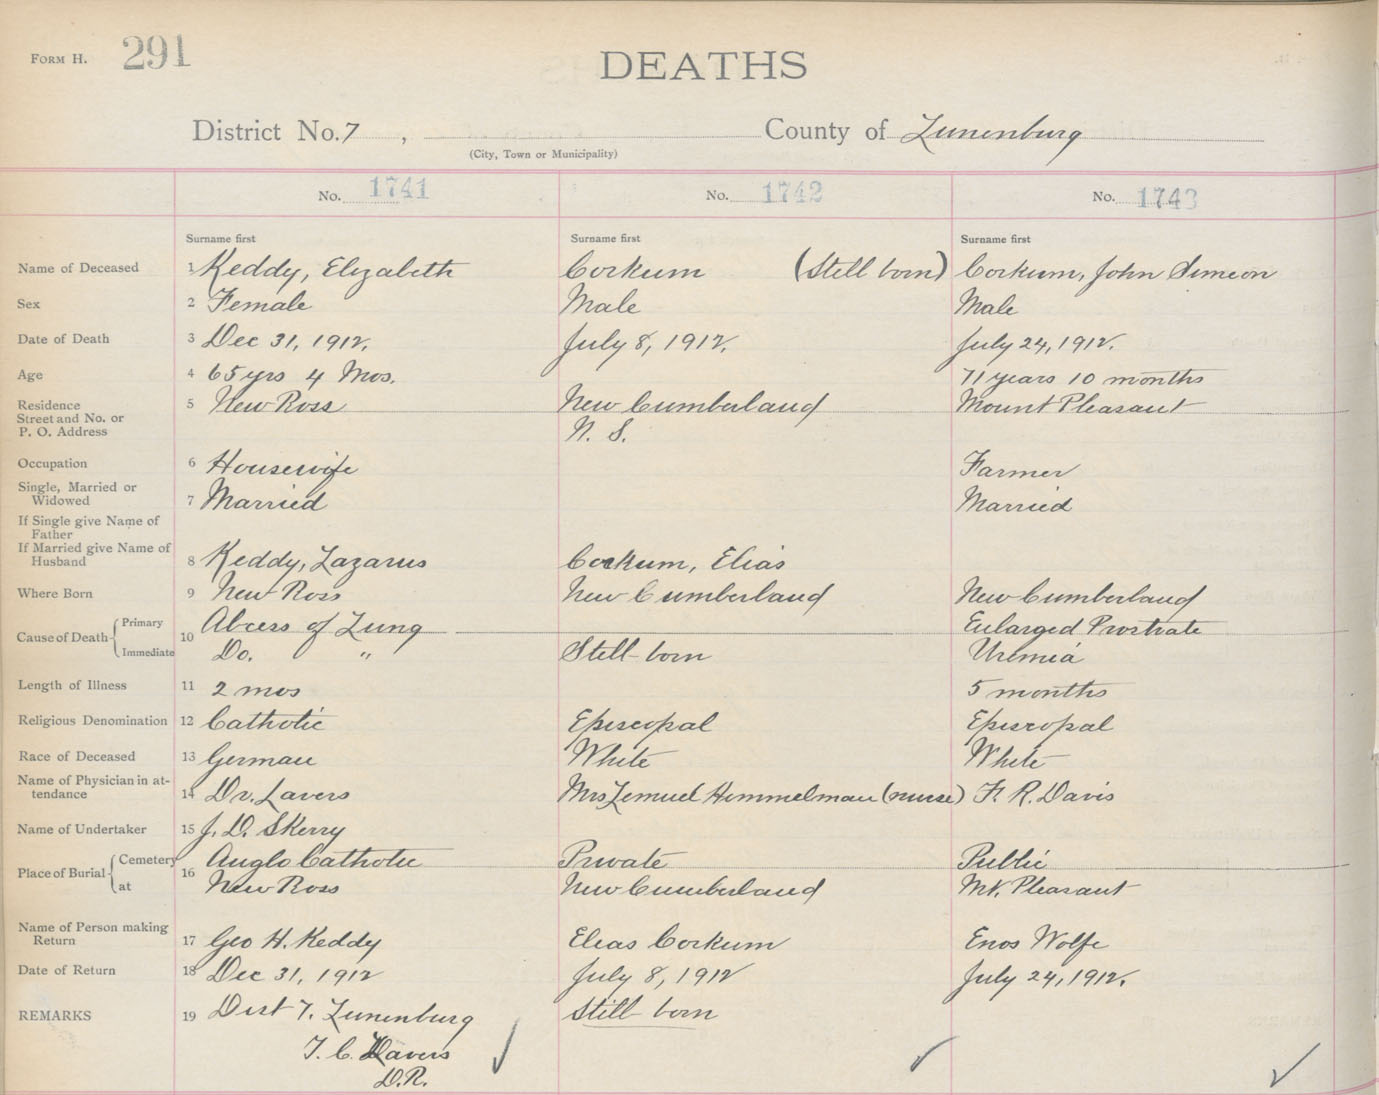 Form H. 291
DEATHS
District No. 7 , County of Lunenburg
(City, Town or Municipality)
No. 1741 No. 1742 No. 1743
Surname first Surname first Surname first
Name of Deceased 1 Keddy, Elizabeth Corkum (Still born) Corkum, John Simeon
Sex 2 Female Male Male
Date of Death 3 Dec 31, 1912. July 8, 1912. July 24, 1912.
Age 4 65 yrs 4 Mos. 71 years 10 months
Residence
Street and No. or
P. O. Address
5 New Ross New Cumberland Mount Pleasant
N. S.
Occupation 6 Housewife Farmer
Single, Married or
Widowed 7 Married Married
If Single give Name of
Father
If Married give Name of
Husband 8 Keddy, Lazarus Corkum, Elias
Where Born 9 New Ross New Cumberland New Cumberland
Cause of Death Primary 10 Abcess of Lung Enlarged Prostrate
Immediate Do. " Still-born Uremia
Length of Illness 11 2 mos 5 months
Religious Denomination 12 Catholic Episcopal Episcopal
Race of Deceased 13 German White White
Name of Physician in at-
tendance 14 Dr. Lavers Mrs Lemuel Himmelman (nurse) F. R. Davis
Name of Undertaker 15 J. D. Skerry
Place of Burial Cemetery 16 Anglo Catholic Private Public
at New Ross New Cumberland Mt. Pleasant
Name of Person making
Return 17 Geo H. Keddy Elias Corkum Enos Wolfe
Date of Return 18 Dec 31, 1912 July 8, 1912 July 24, 1912.
REMARKS 19 Dist 7. Lunenburg Still-born
T. C. Lavers
D.R.